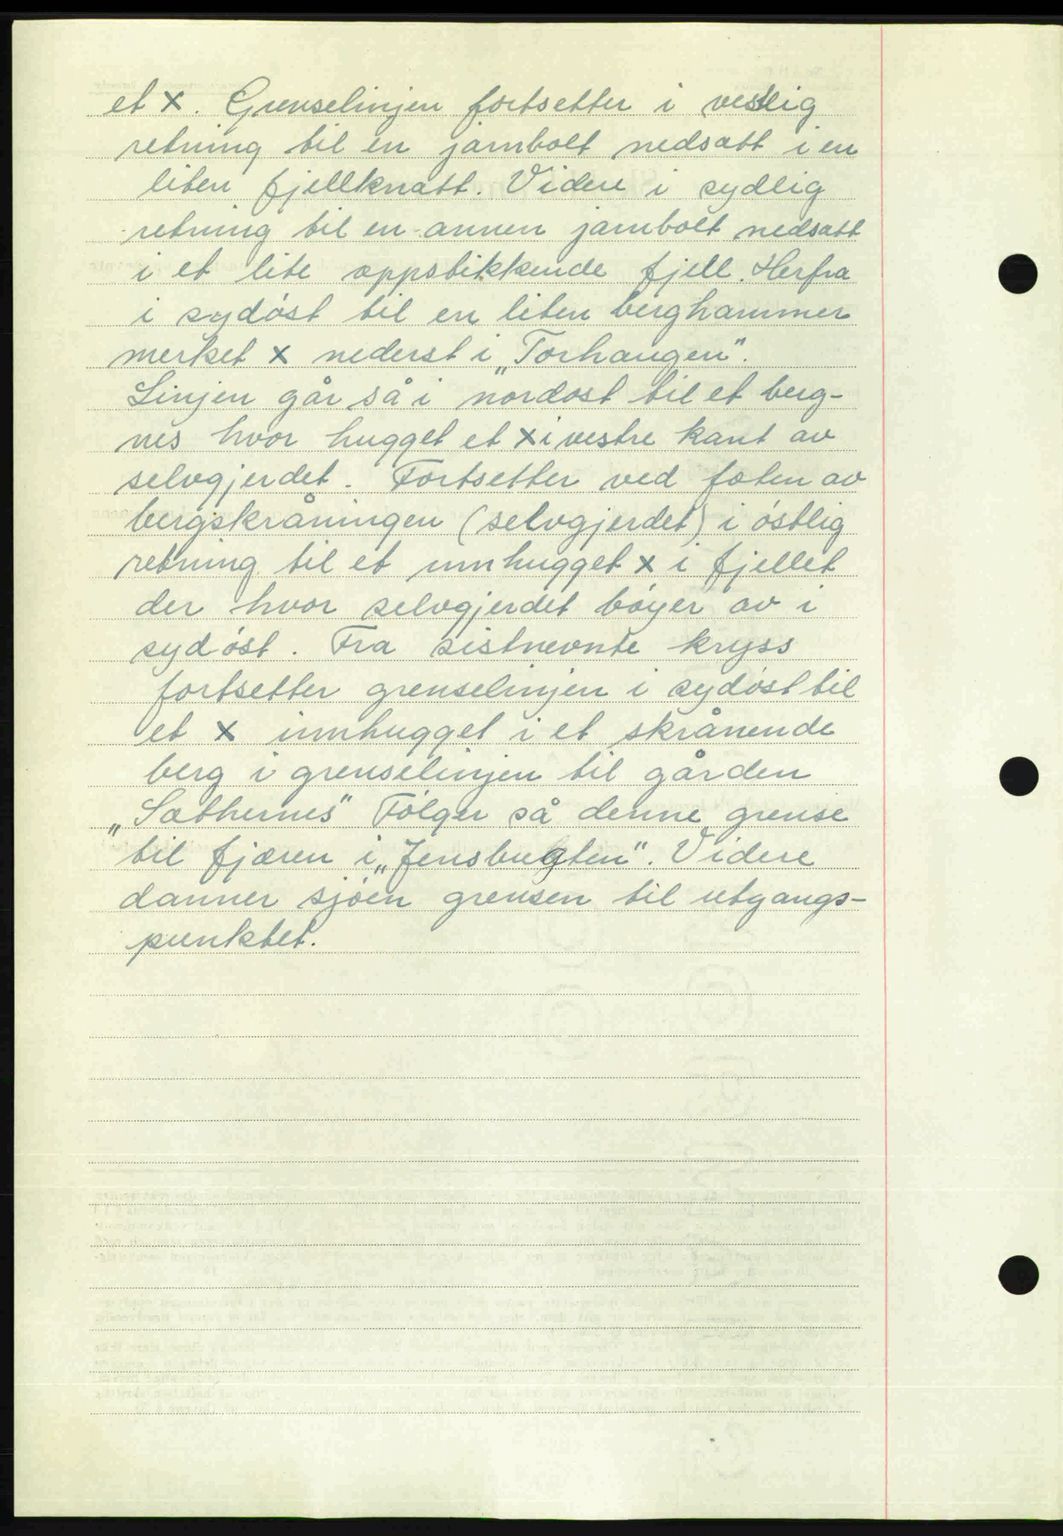 et x. Grenselinjen fortsetter i vestlig
retning til en jarnbolt nedsatt i en
liten fjellknatt. Videre i sydlig
retning til en annen jarnbolt nedsatt
i et lite oppstikkende fjell. Herfra
i sydöst til en liten berghammer
merket x nederst i „Torhaugen".
Linjen går så i nordost til et berg-
nes hvor hugget et x i vestre kant av
selvgjerdet. Fortsetter ved foten av
bergskråningen (selvgjerdet) i östlig
retning til et innhugget x i fjellet
der hvor selvgjerdet böyer av i
sydöst. Fra sistnevnte kryss
fortsetter grenselinjen i sydöst til
et x innhugget i et skrånende
berg i grenselinjen til gården
„Sæthernes" Fölger så denne grense
til fjæren i „Jensbugten". Videre
danner sjöen grensen til utgangs-
punktet.